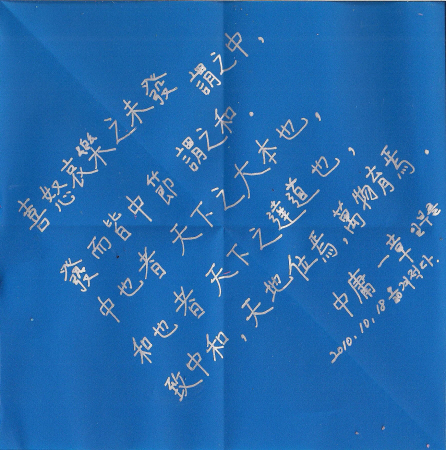 喜怒哀樂之未發 謂之中,
發而皆中節 謂之和.
中也者 天下之大本也,
和也者 天下之達道也,
致中和, 天地位焉, 萬物育焉.
中庸 一章
2010.10.18